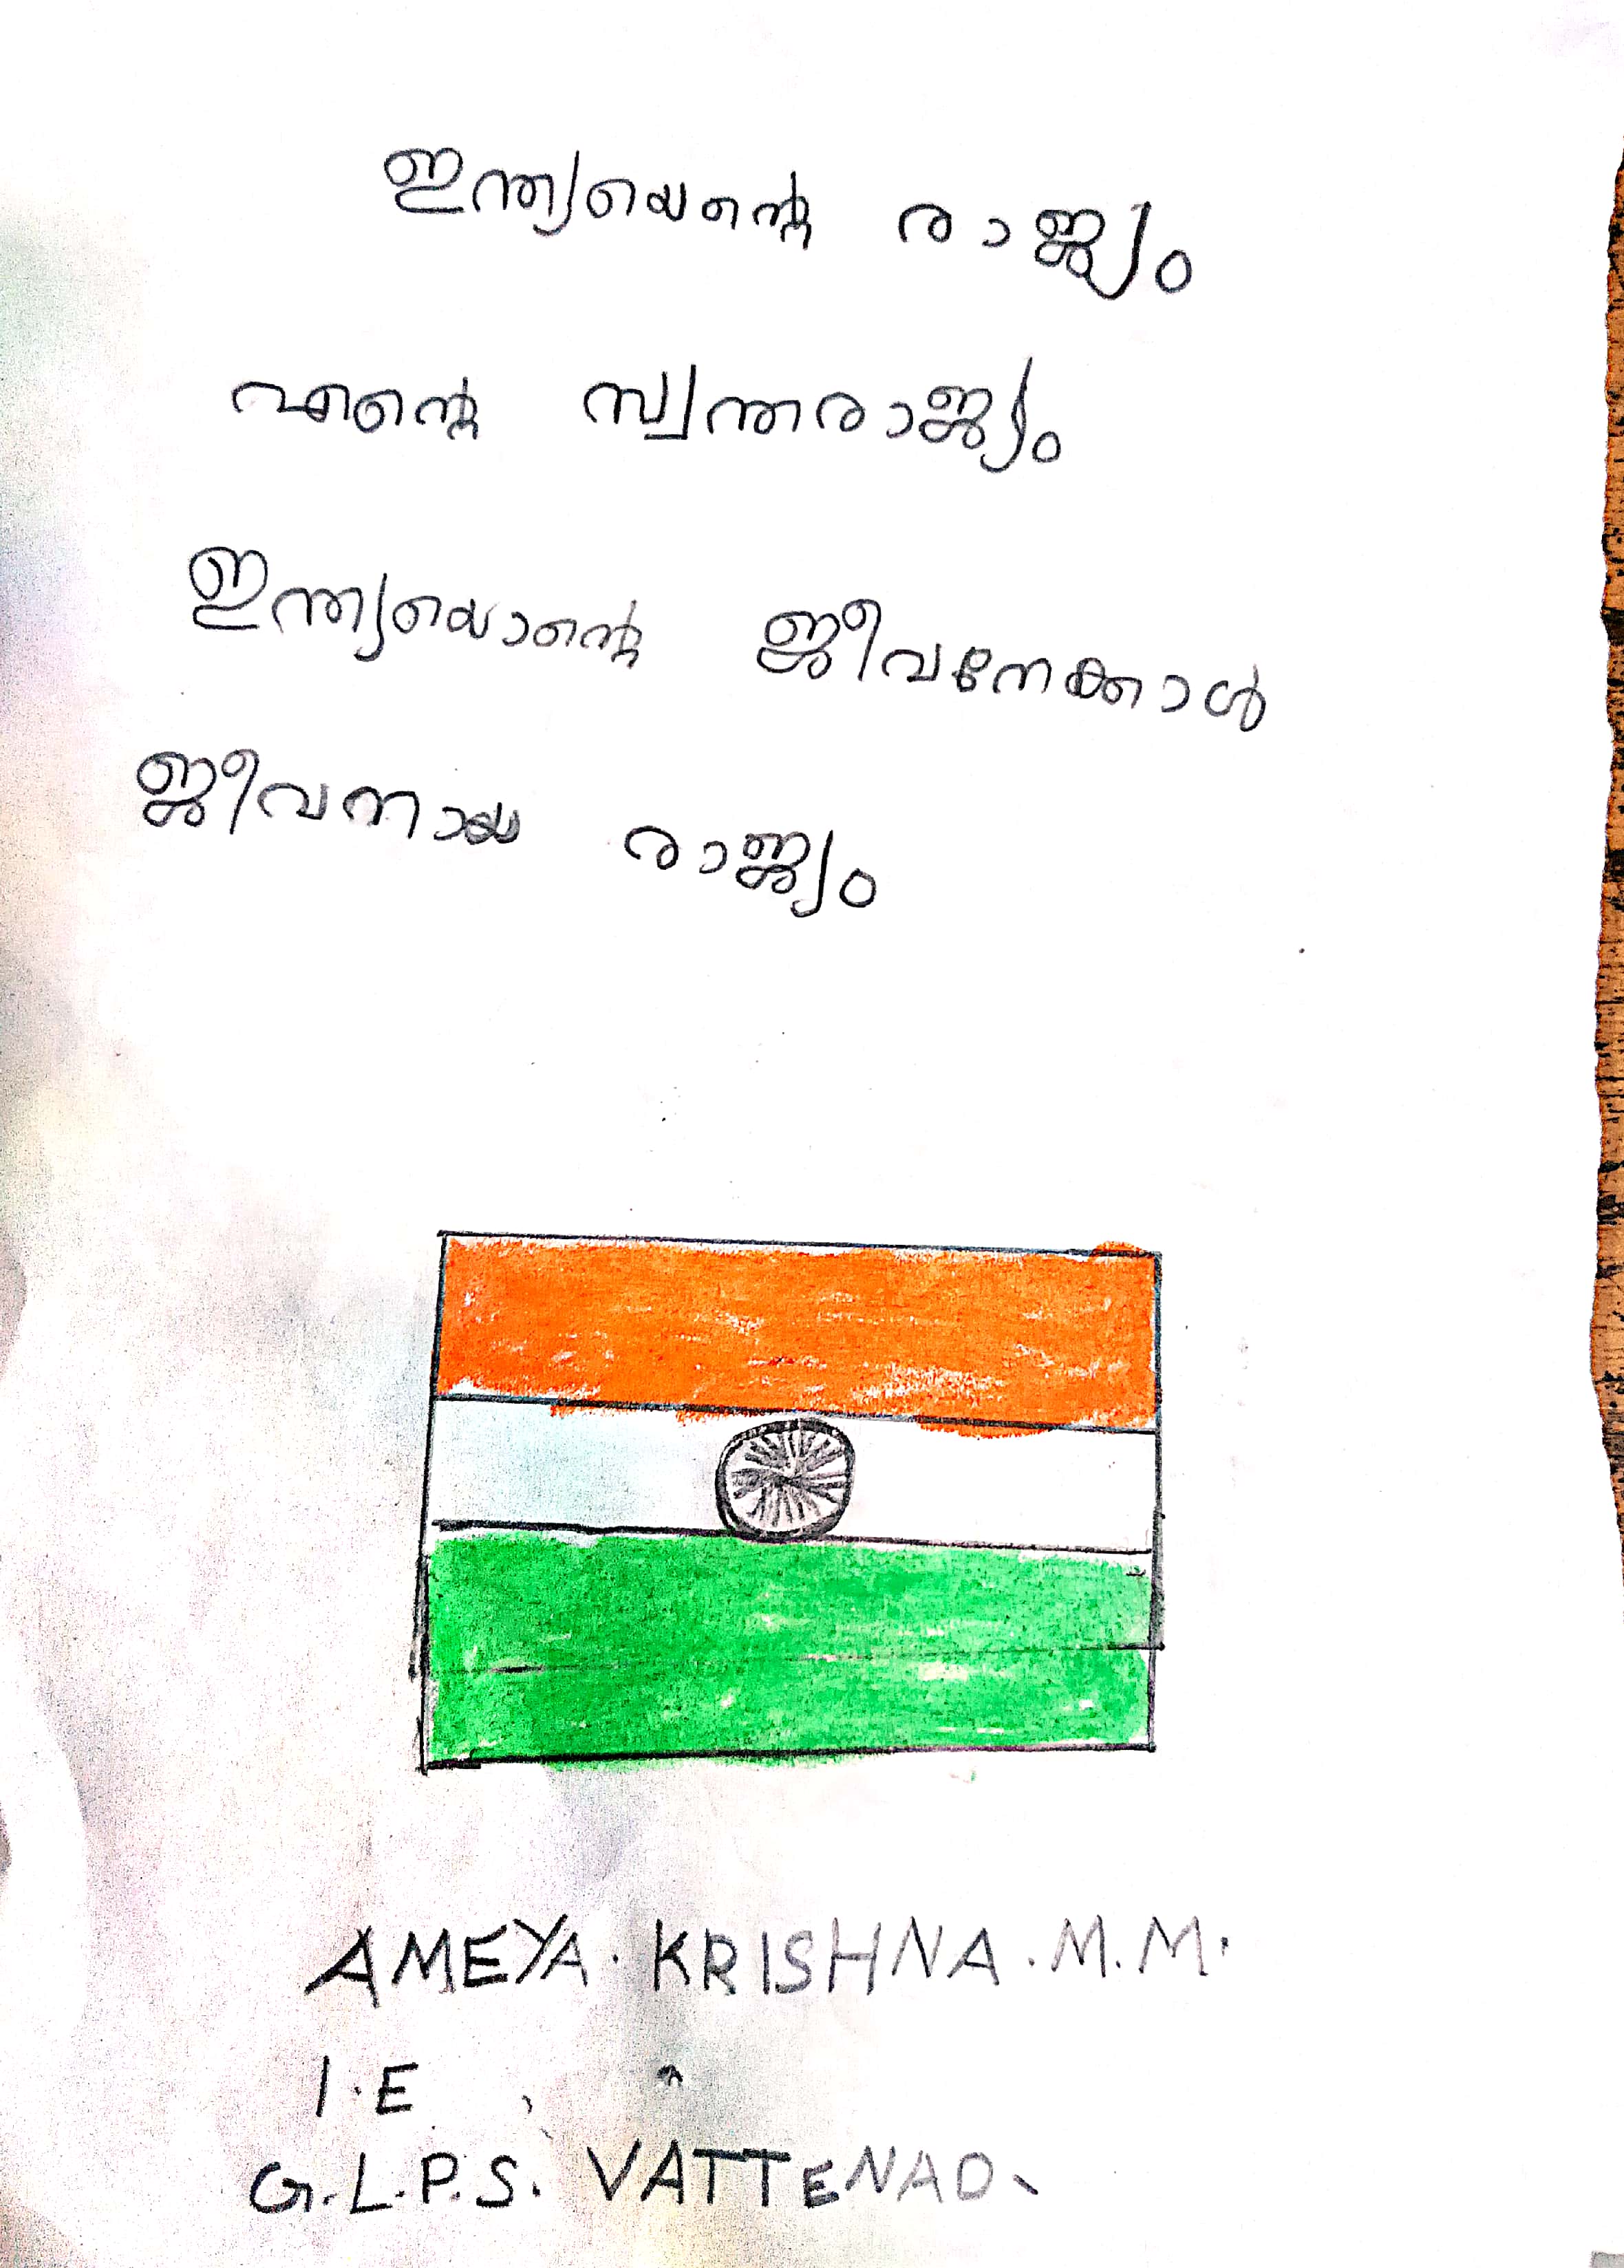 ഇന്ത്യയെന്റെ രാജ്യം
എന്റെ സ്വന്തരാജ്യം
ഇന്ത്യയൊന്റെ ജീവനേക്കാൾ
ജീവനായ രാജ്യം
AMEYA. KRISHNA. M. M.
I. E
G. L. P. S. VATTENAD.